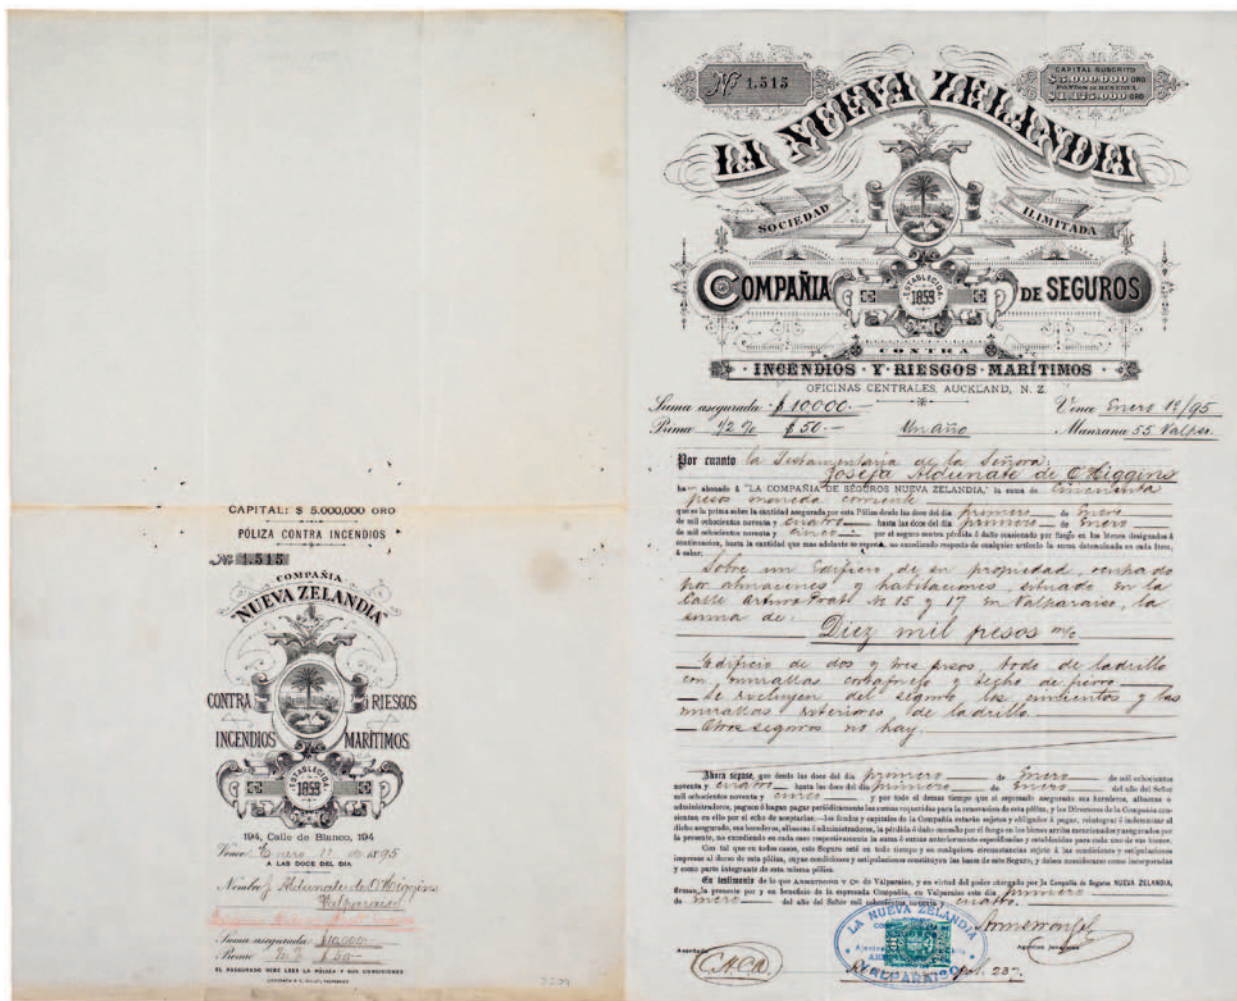 CAPITAL: $ 5.000,000 ORO
PÓLIZA CONTRA INCENDIOS
Nº 1.515
COMPAÑIA
"NUEVA ZELANDIA"
CONTRA RIESGOS
INCENDIOS MARÍTIMOS
ESTABLECIDA
1859
194, Calle de Blanco, 194
Vence Enero 1º de 1895
A LAS DOCE DEL DIA
Nombre J. Aldunate de O'Higgins
Valparaiso
Suma asegurada $10000
Premio ½ % $50-
EL ASEGURADO DEBE LEER LA PÓLIZA Y SUS CONDICIONES
Nº 1.515
CAPITAL SUSCRITO
$5.000,000 ORO
FONDOS DE RESERVA
$1.175.000 ORO
LA NUEVA ZELANDIA
SOCIEDAD ILIMITADA
COMPAÑIA DE SEGUROS
ESTABLECIDA
1859
CONTRA
INCENDIOS Y RIESGOS MARÍTIMOS
OFICINAS CENTRALES, AUCKLAND, N. Z.
Suma asegurada $10000.- Vence Enero 1º/95
Prima 1/2 % $50.- Un año Manzana 55 Valpso.
Por cuanto la Testamentaria de la Señora
Josefa Aldunate de O'Higgins
ha abonado á "LA COMPAÑIA DE SEGUROS NUEVA ZELANDIA," la suma de Cincuenta
pesos moneda corriente
que es la prima sobre la cantidad asegurada por esta Póliza desde las doce del dia primero de Enero
de mil ochocientos noventa y cuatro hasta las doce del dia primero de Enero
de mil ochocientos noventa y cinco por el seguro contra pérdida ó daño ocasionado por fuego en los bienes designados á
continuacion, hasta la cantidad que mas adelante se espresa, no excediendo respecto de cualquier artículo la suma determinada en cada ítem,
á saber:
Sobre un Edificio de su propiedad, ocupado
por almacenes y habitaciones, situado en la
Calle Arturo Prat Nº 15 y 17 en Valparaiso, la
suma de:
Diez mil pesos m/c
Edificio de dos y tres pisos, todo de ladrillo
con murallas cortafuego y techo de fierro
Se excluyen del seguro los cimientos y las
murallas exteriores de ladrillo.
Otros seguros no hay.
Ahora sépase, que desde las doce del dia primero de Enero de mil ochocientos
noventa y cuatro hasta las doce del dia primero de Enero del año del Señor
mil ochocientos noventa y cinco y por todo el demas tiempo que el espresado asegurado sus herederos, albaceas o
administradores, paguen ó hagan pagar periódicamente las sumas requeridas para la renovacion de esta póliza, y los Directores de la Compañia con-
sientan en ello por el echo de aceptarlas:—los fondos y capitales de la Compañia estarán sujetos y obligados á pagar, reintegrar ó indemnizar el
dicho asegurado, sus herederos, albaceas ó administradores, la pérdida ó daño causado por el fuego en los bienes arriba mencionados y asegurados por
la presente, no excediendo en cada caso respectivamente la suma ó sumas anteriormente especificadas y establecidas para cada uno de sus bienes.
Con tal que en todos casos, este Seguro esté en todo tiempo y en cualquiera circunstancias sujeto á las condiciones y estipulaciones
impresas al dorso de esta póliza, cuyas condiciones y estipulaciones constituyen las bases de este Seguro, y deben considerarse como incorporadas
y como parte integrante de esta misma póliza.
En testimonio de lo que ARMSTRONG Y Cª. de Valparaiso, y en virtud del poder otorgado por la Compañia de Seguros NUEVA ZELANDIA,
firman la presente por y en beneficio de la espresada Compañia, en Valparaiso este dia primero
de Enero del año del Señor mil ochocientos noventa y cuatro.
LA NUEVA ZELANDIA
VALPARAISO
Agentes
fol. 237.